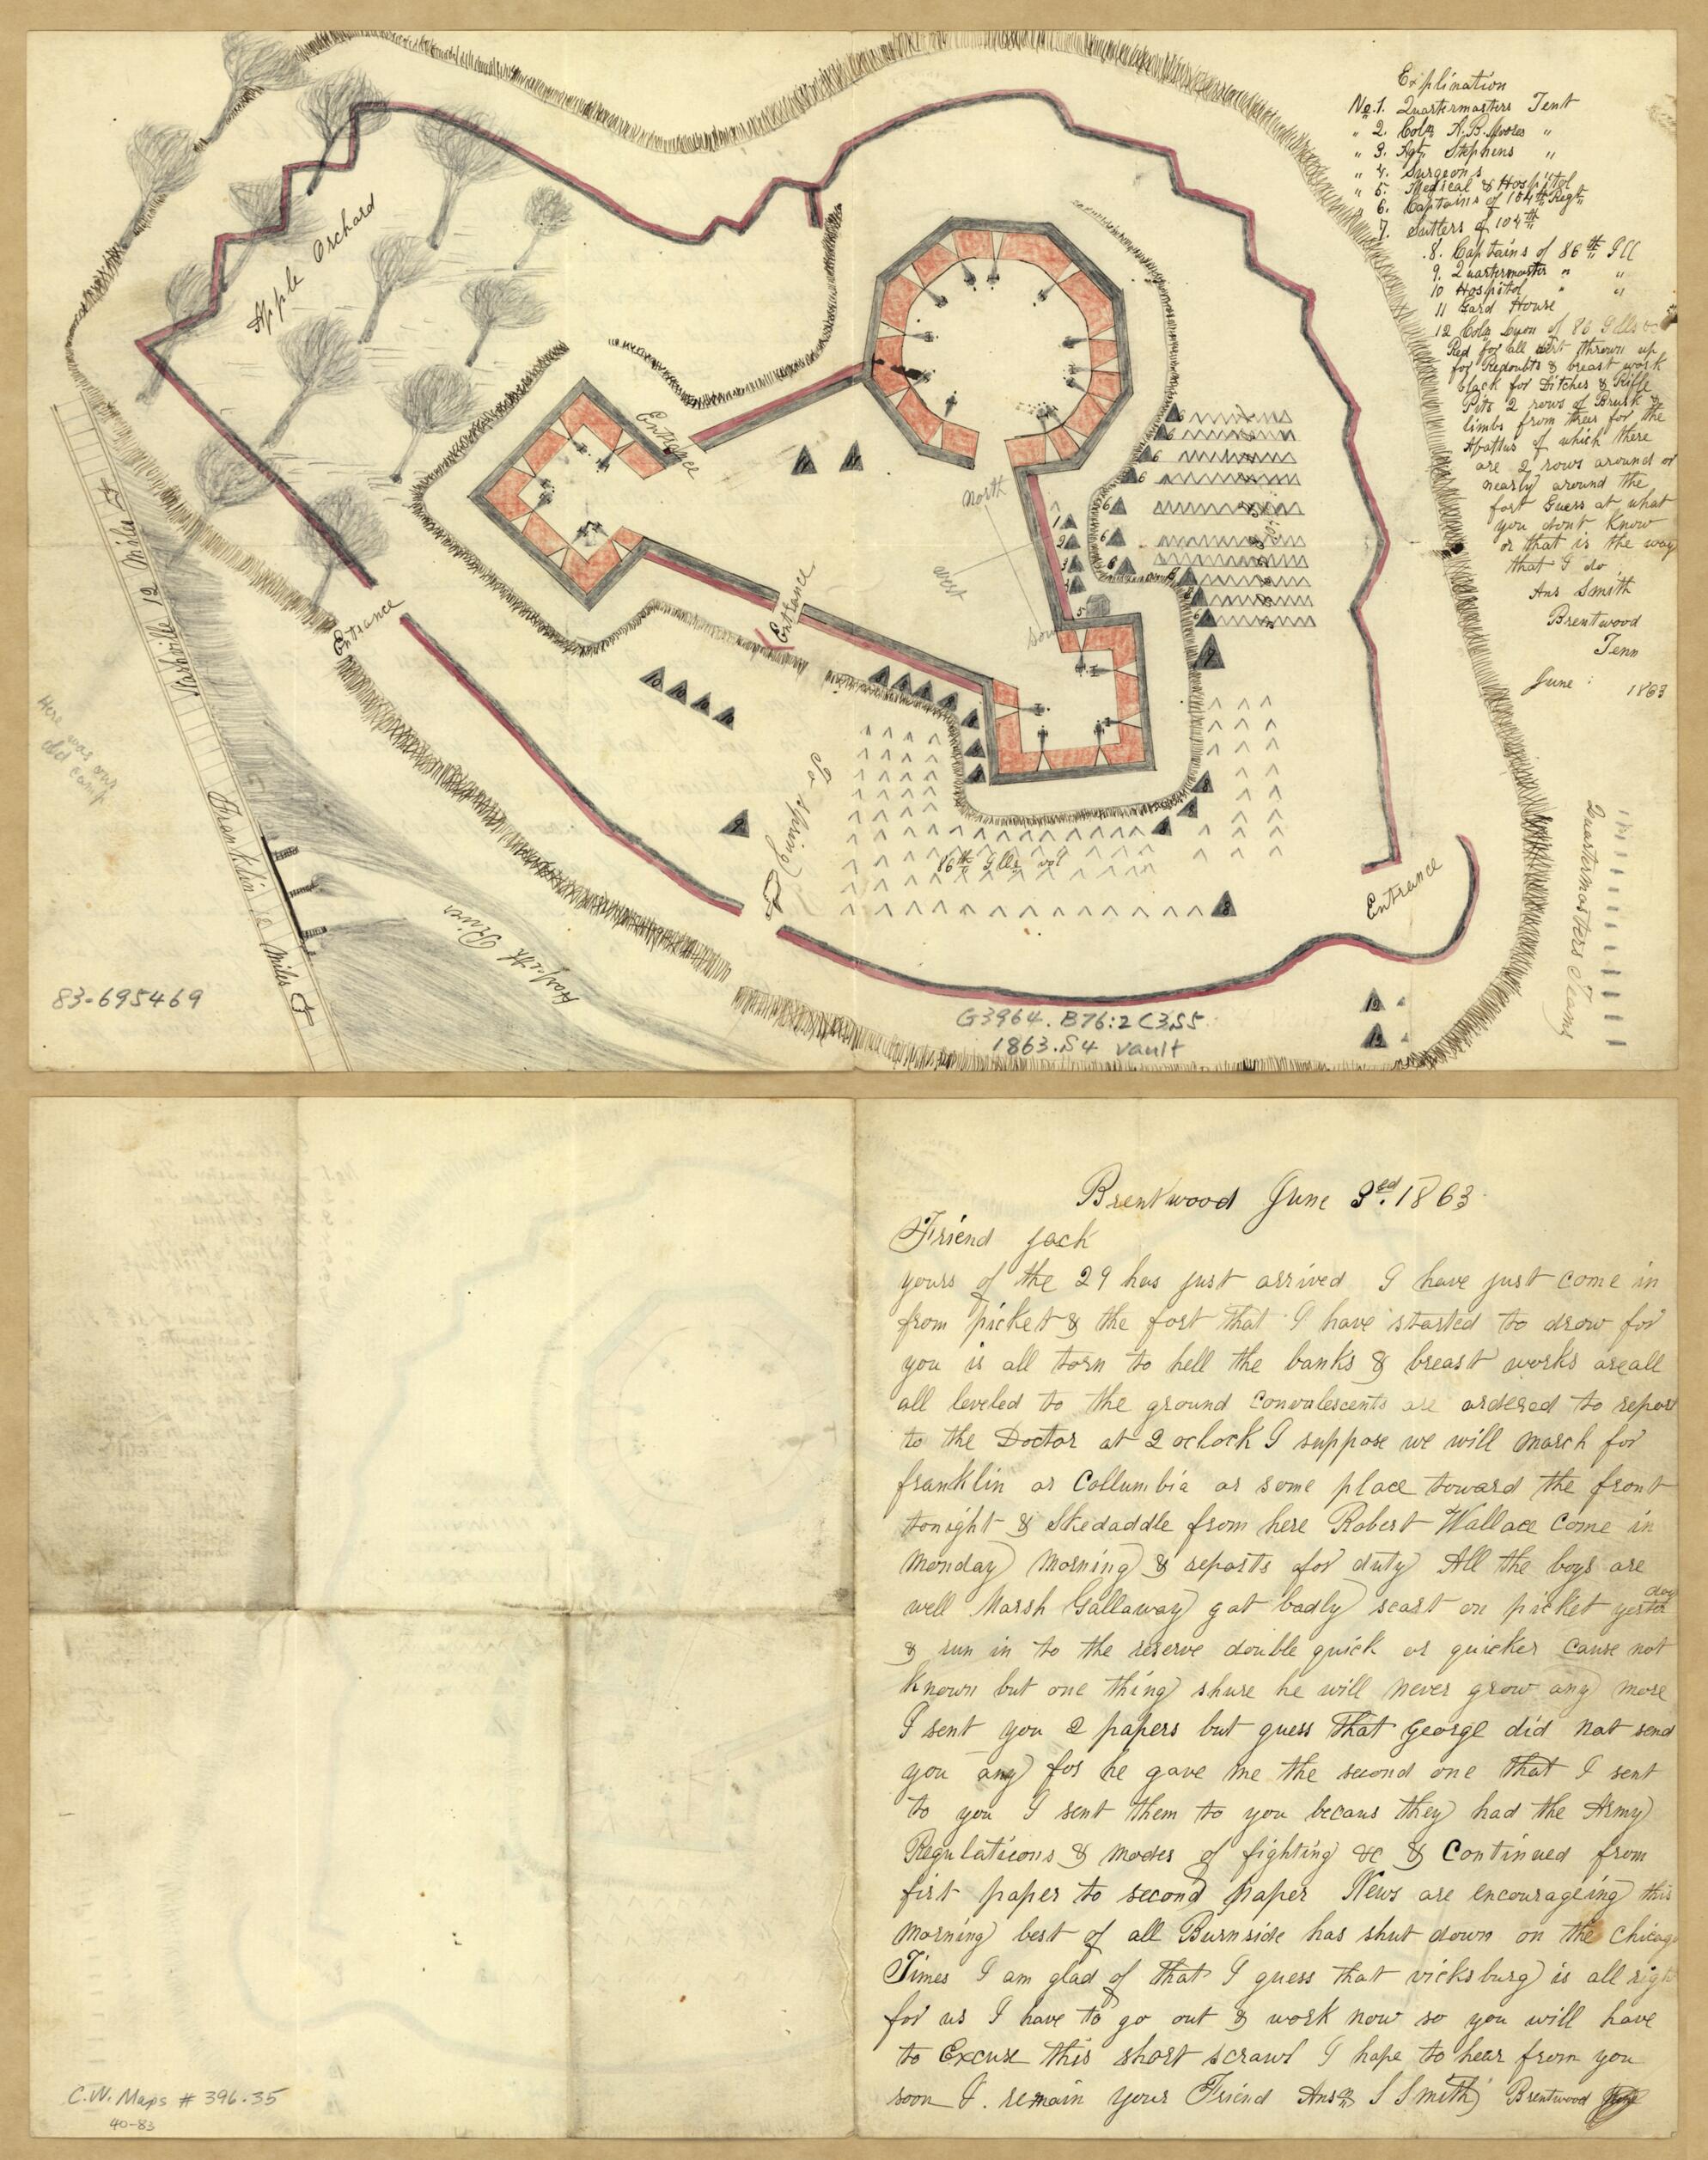 Explination
No. 1. Quartermasters Tent
" 2. Coln A. B. Moores "
" 3. Agt. Stephens "
" 4. Surgeons
" 5. Medical & Hospitol
6. Captains of 104th Regt
7. Sutlers of 104th
8. Captains of 86th Ill
9. Quartermaster " "
10 Hospitol " "
11 Gard House
12 Coln of 86 Ills
Red for all dirt thrown up
for Redoubts & breast work
black for Ditches & Rifle
Pits 2 rows of Brush &
limbs from trees for the
Abattus of which there
are 2 rows around or
nearly around the
fort Guess at what
you dont know
or that is the way
that I do
Ans Smith
Brentwood
Tenn
June 1863
Apple Orchard
Entrance
Entrance
Entrance
Entrance
North
West
Sou
Nashville 12 Miles
Franklin Miles
Harpeth River
Here was our
old camp
To Camp
86th Ills vol
Quartermasters Teams
1
2
3
4
5
6
6
6
6
6
6
6
6
7
8
8
8
9
10
10
10
10
12
83-695469
G3964.B76:2C3S5
1863.S4 vault
Brentwood June 3ed. 1863
Friend Jack
yours of the 29 has just arrived I have just come in
from picket & the fort that I have started to drow for
you is all torn to hell the banks & breast works are all
all leveled to the ground convalescents are ordered to report
to the Doctor at 2 oclock I suppose we will march for
franklin or Collumbia or some place toward the front
tonight & Skedaddle from here Robert Wallace Come in
Monday Morning & reports for duty All the boys are
well Marsh Gallaway got badly scart on picket yesterday
& run in to the reserve double quick or quicker cause not
known but one thing shure he will never grow any more
I sent you 2 papers but guess that George did not send
you any for he gave me the second one that I sent
to you I sent them to you becaus they had the Army
Regulations & modes of fighting &c & Continued from
first paper to second paper News are encourageing this
morning best of all Burnside has shut down on the Chicago
Times I am glad of that I guess that vicksburg is all right
for us I have to go out & work now so you will have
to Excuse this short scrawl I hope to hear from you
soon I. remain your Friend Ansn S Smith Brentwood
C.W. Maps # 396.35
40-83